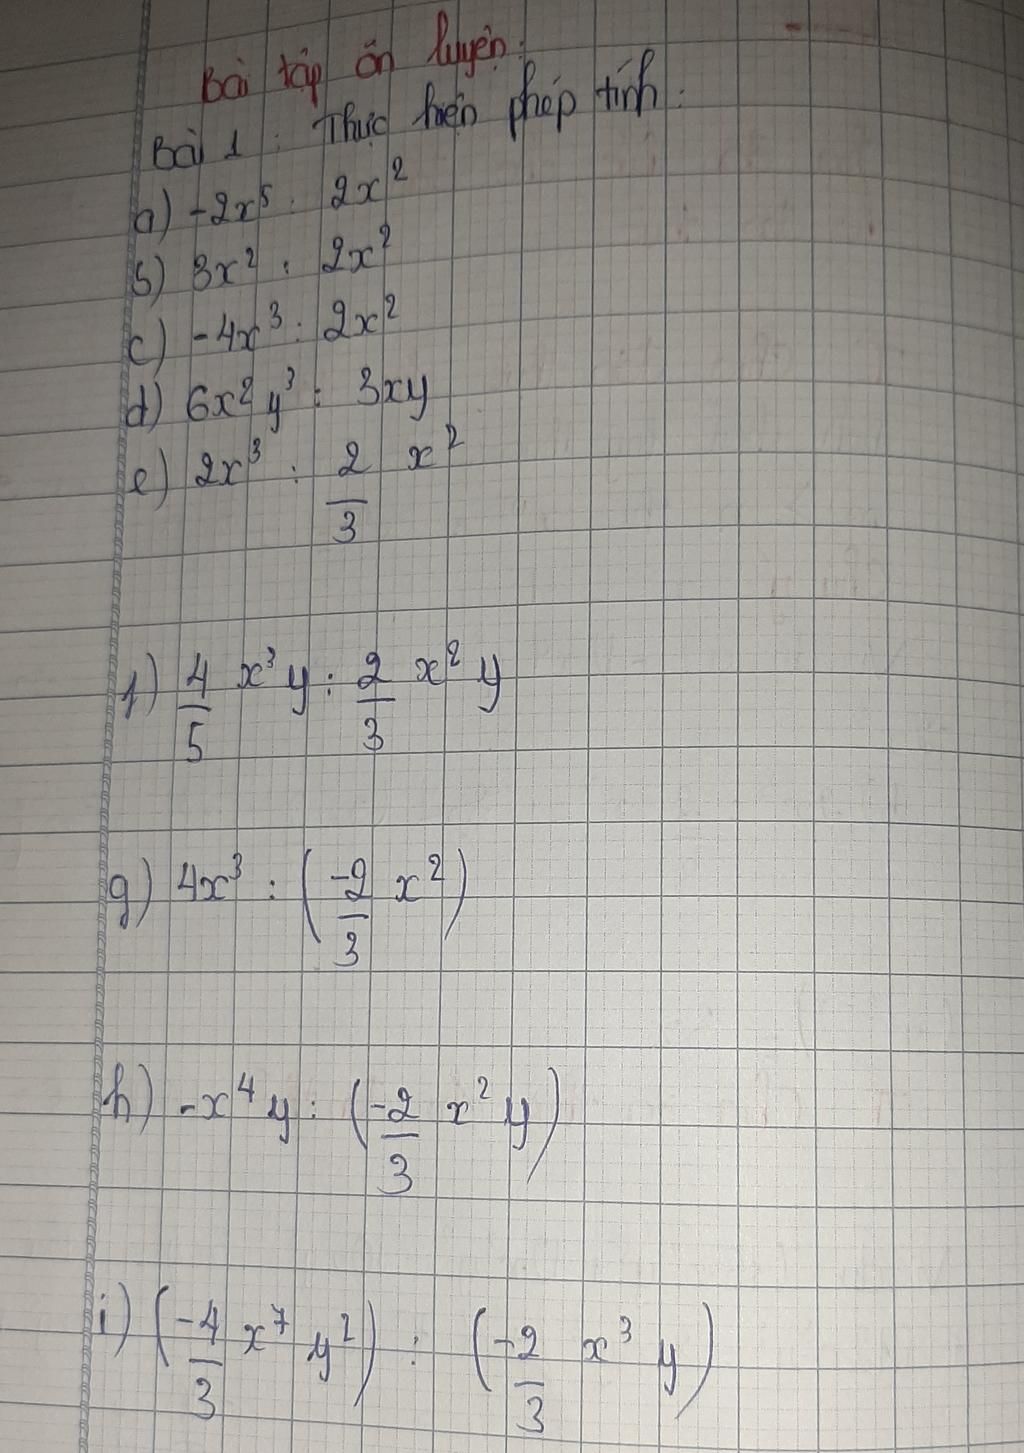 Bài tập ôn luyện:
Bài 1: Thực hiện phép tính:
a) -2x⁵ : 2x²
b) 3x² : 2x²
c) -4x³ : 2x²
d) 6x²y³ : 3xy
e) 2x³ : 2/3 x²
f) 4/5 x³y : 2/3 x²y
g) 4x³ : (-2/3 x²)
h) -x⁴y : (-2/3 x²y)
i) (-4/3 x⁷y²) : (-2/3 x³y)